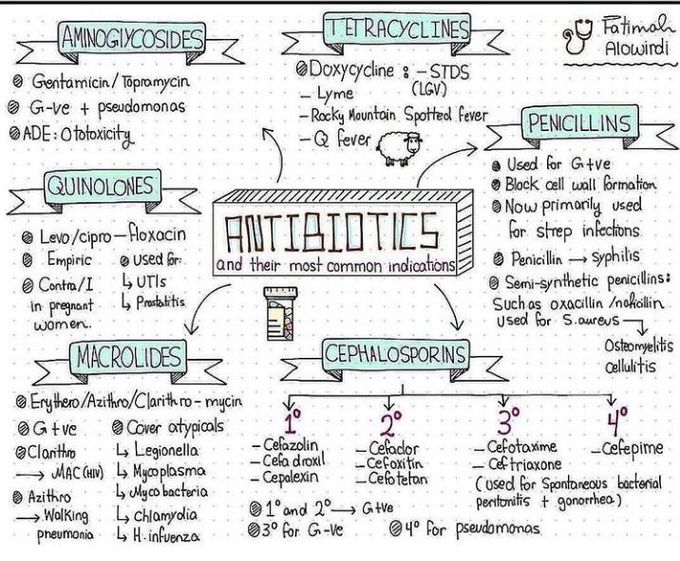 AMINOGLYCOSIDES
Gentamicin/Topramycin
G-ve + pseudomonas
ADE: Ototoxicity
TETRACYCLINES
Doxycycline: - STDS
(LGV)
- Lyme
- Rocky Mountain Spotted fever
- Q fever
Fatimah
Alowirdi
PENICILLINS
Used for G+ve
Block cell wall formation
Now primarily used
for strep infections.
Penicillin → syphilis
Semi-synthetic penicillins:
Such as oxacillin/nafcillin
used for S.aureus →
Osteomyelitis
Cellulitis
QUINOLONES
Levo/cipro-floxacin
Empiric
Contra/I
in pregnant
women.
used for:
↳ UTIs
↳ Prostatitis
ANTIBIOTICS
and their most common indications
MACROLIDES
Erythero/Azithro/Clarithro-mycin
G+ve
Clarithro
→ MAC (HIV)
Azithro
→ Walking
pneumonia
Cover atypicals
↳ Legionella
↳ Mycoplasma
↳ Myco bacteria
↳ Chlamydia
↳ H.infuenza
CEPHALOSPORINS
1°
- Cefazolin
- Cefadroxil
- Cepalexin
2°
- Cefaclor
- Cefoxitin
- Cefotetan
3°
- Cefotaxime
- Ceftriaxone
(used for Spontaneous bacterial
peritonitis + gonorrhea)
4°
- Cefepime
1° and 2° → G+ve
3° for G-ve
4° for pseudomonas